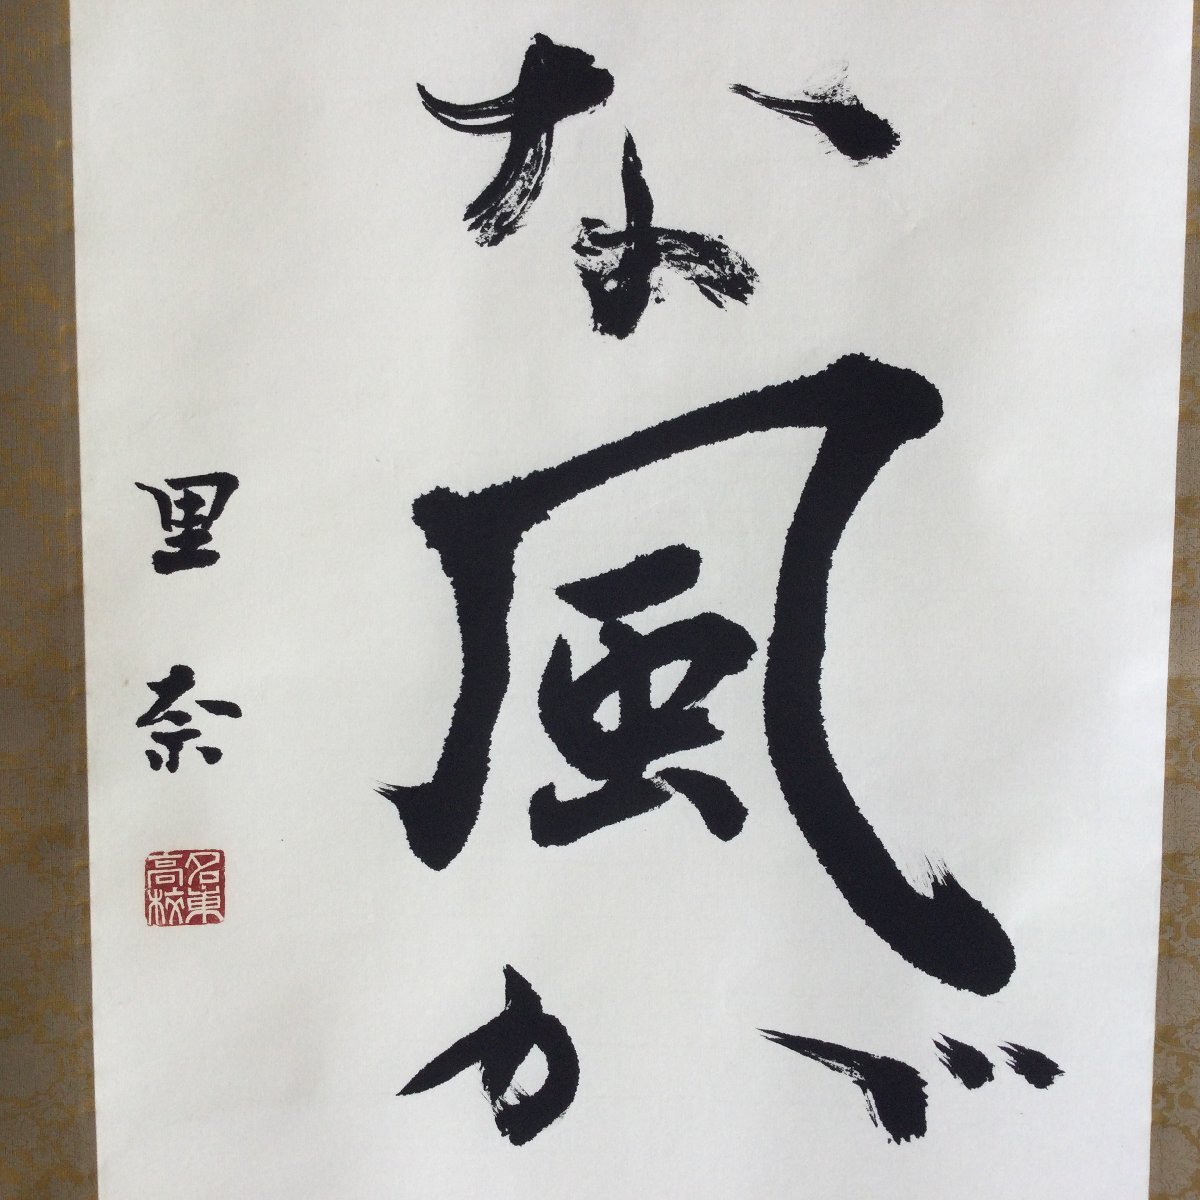 な風が
里奈
名東
高校